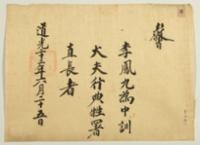 教旨
李鳳九爲中訓
大夫行典牲署
直長者
道光十三年六月二十五日